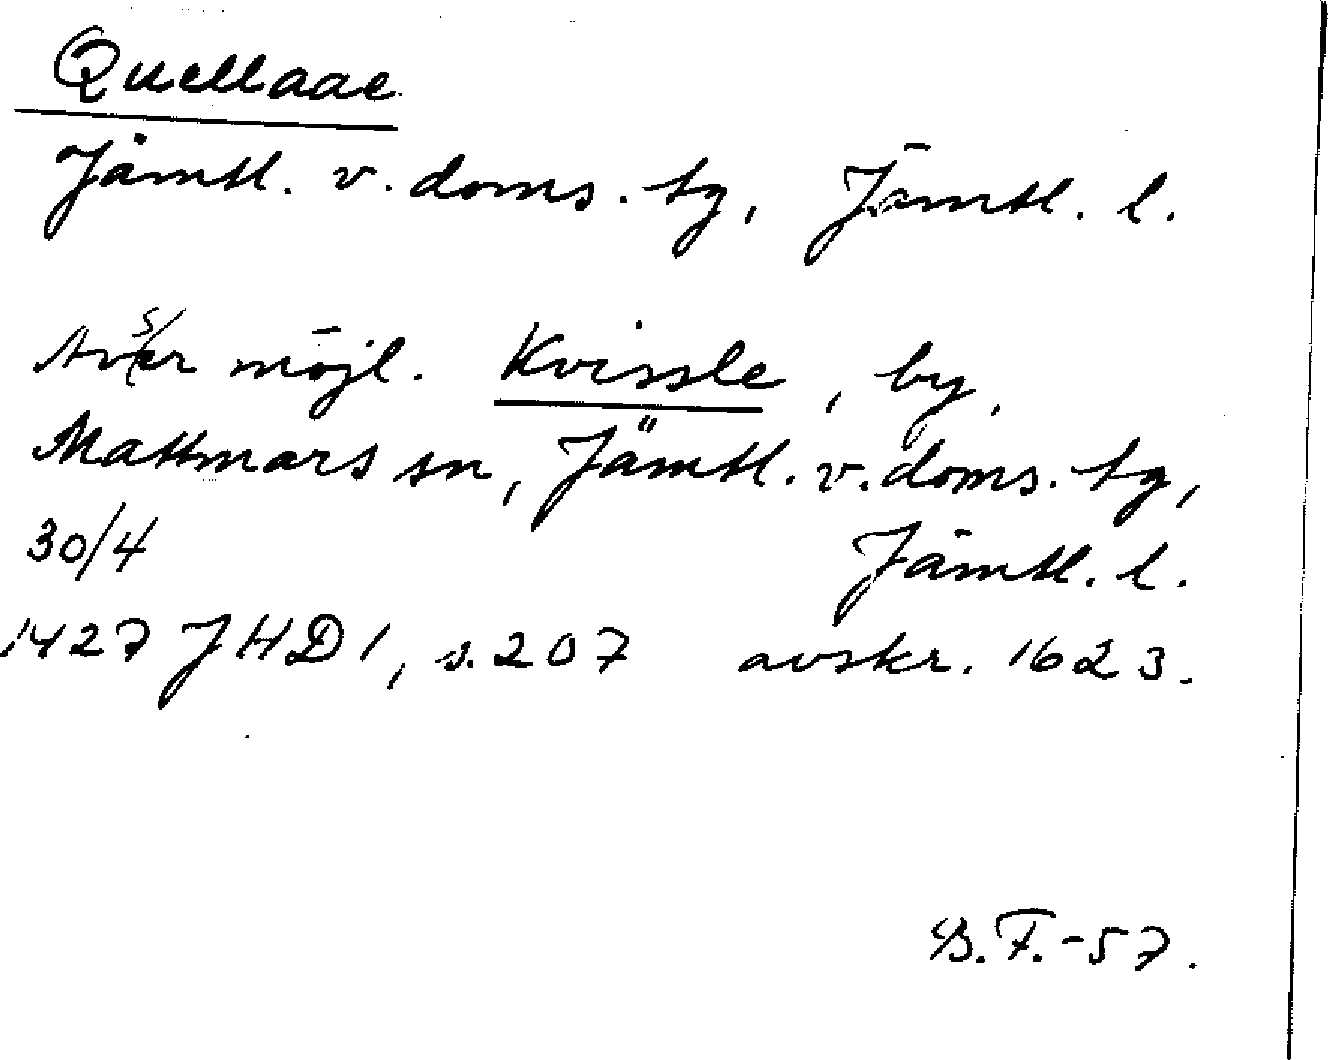 Quellaae
Jämtl. v. doms. tg, Jämtl. l.
Avser möjl. Kvissle, by,
Mattmars sn, Jämtl. v. doms. tg,
30/4 Jämtl. l.
1427 JHD 1, s. 207 avskr. 1623.
B.F.-57.